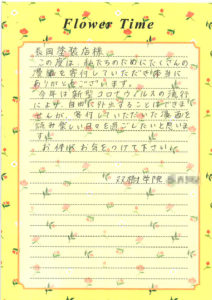 Flower Time
長岡塗装店様
この度は、私たちのためにたくさんの
漫画を寄付していただき本当に
ありがとうございます。
今年は新型コロナウイルスの流行
により、自由に外出することはできま
せんが、寄付していただいた漫画を
読み楽しい日々を過ごしたいと思いま
す。
お体にお気をつけて下さい。
双樹学院